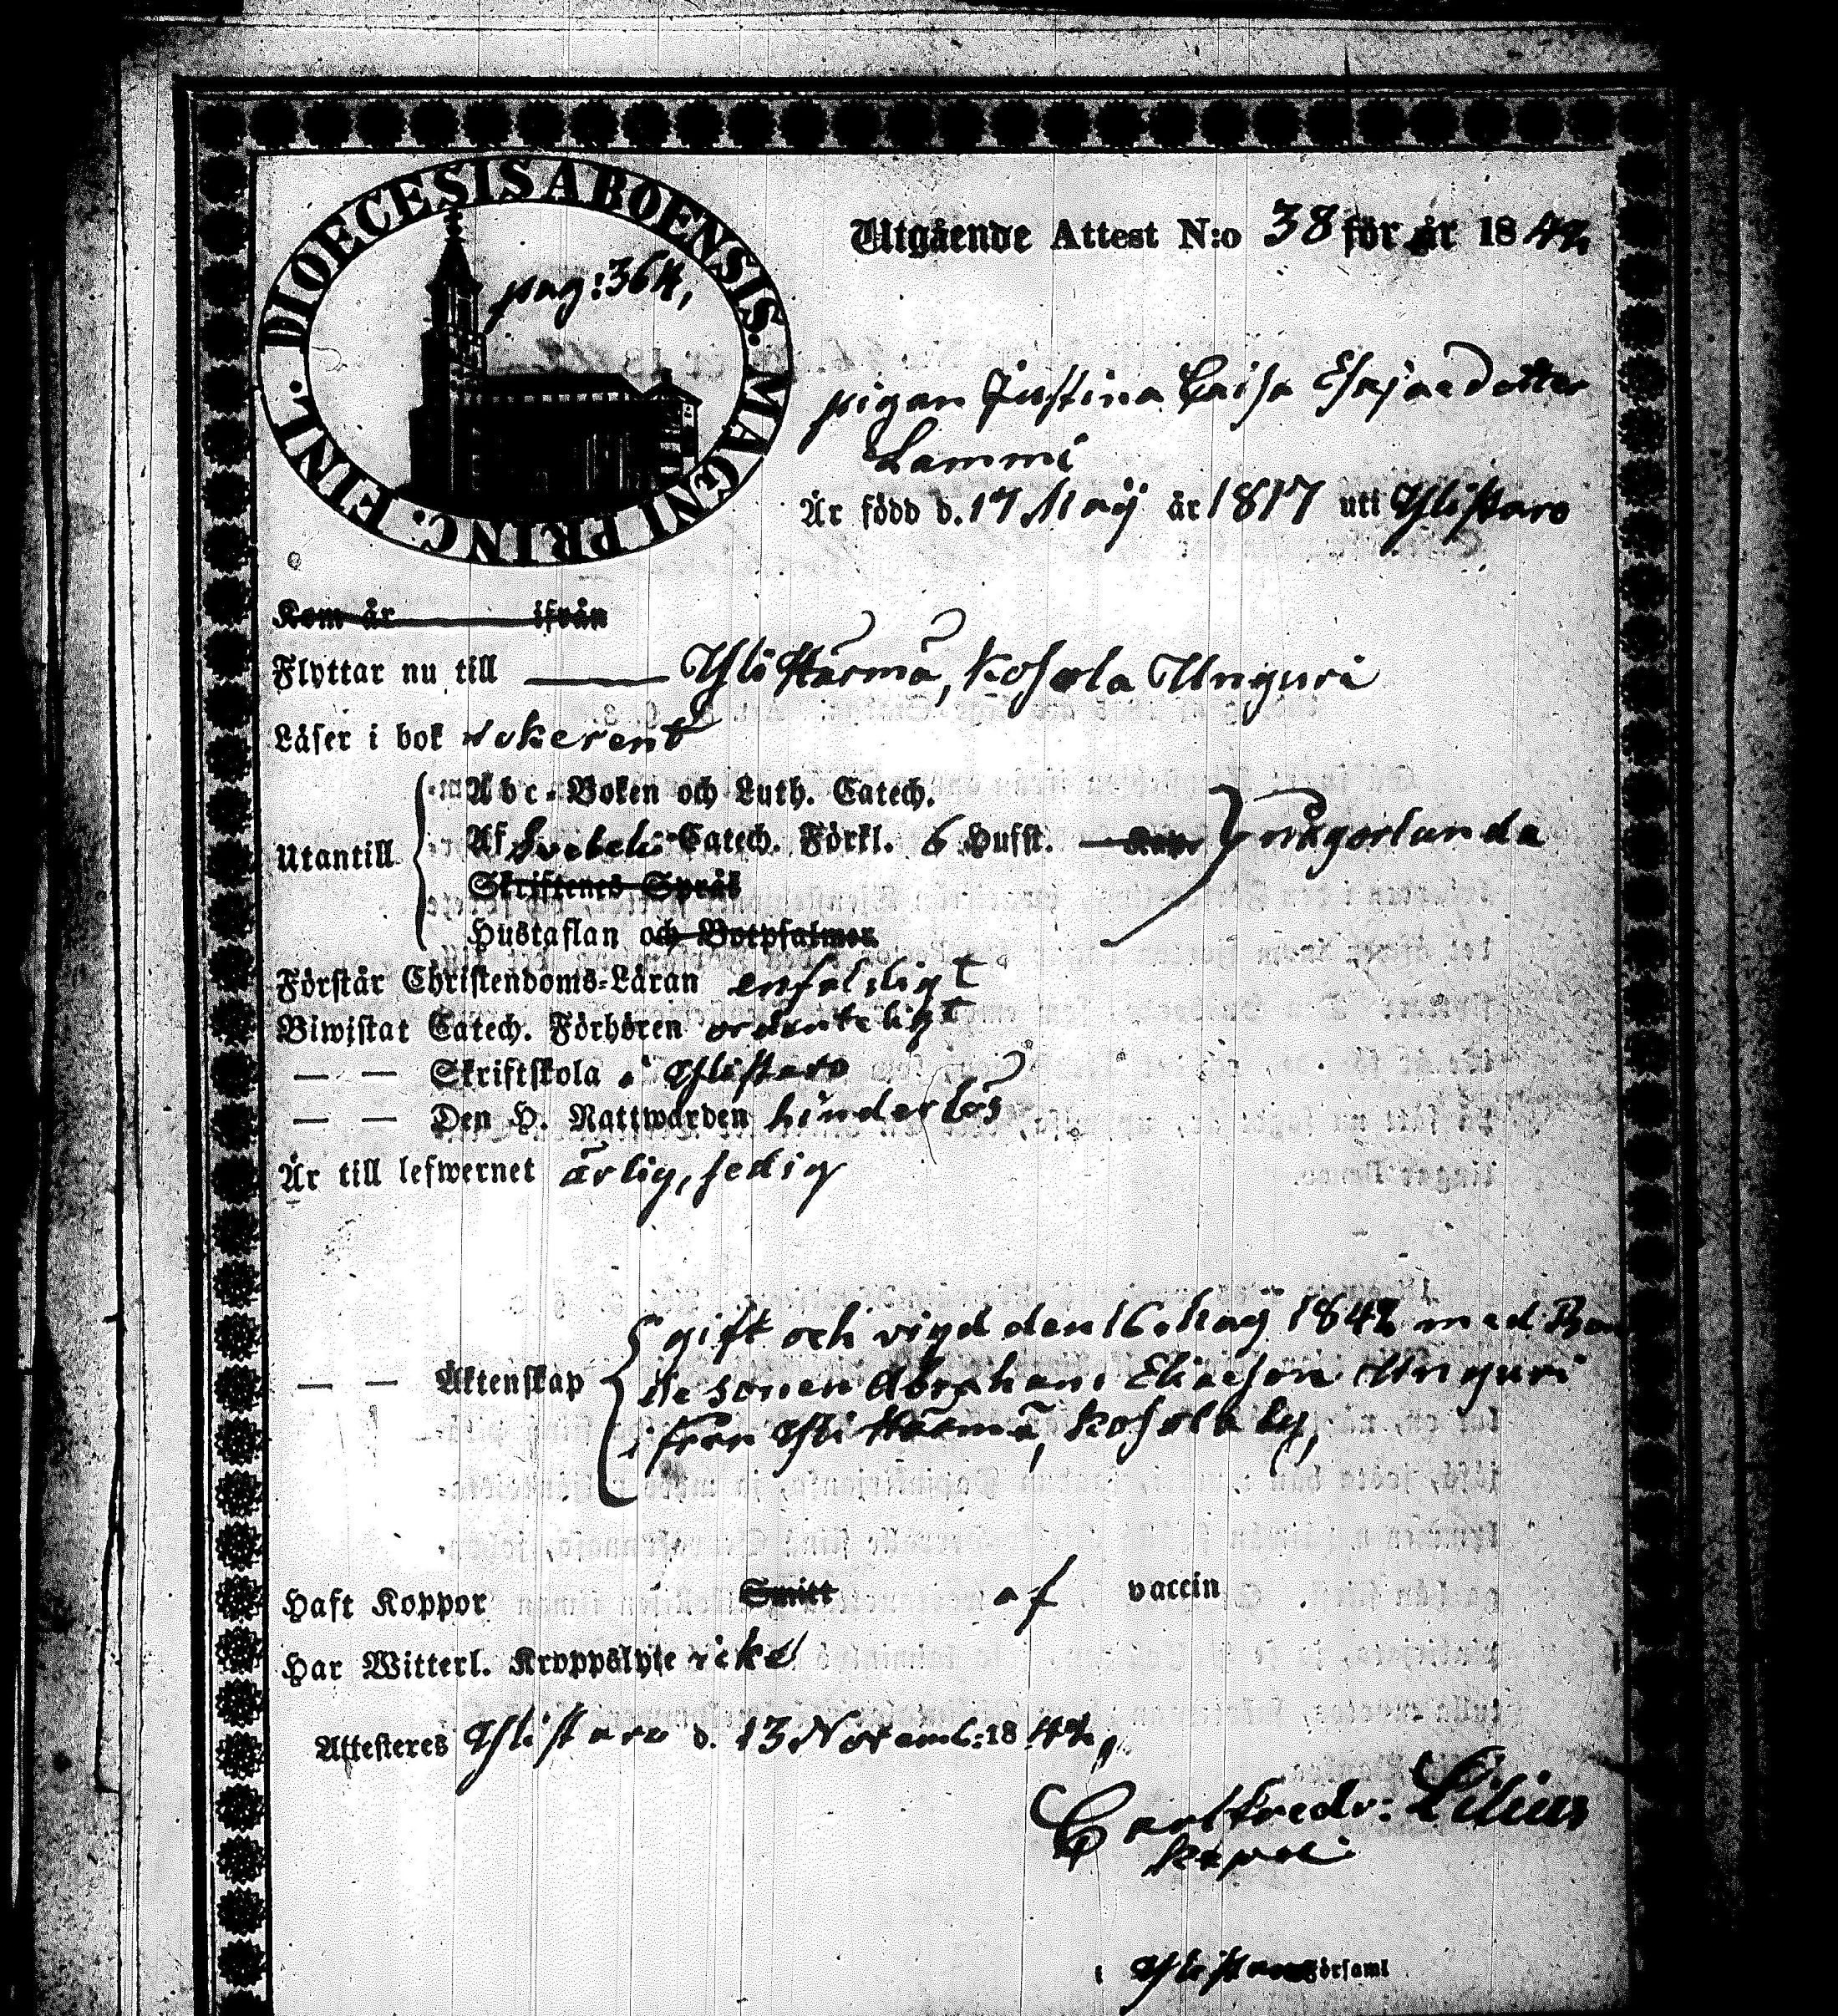 DIOECESIS ABOENSIS. MAGNI PRINC. FINL.
pag: 364,
Utgående Attest N:o 38 för år 1842
pigan Justina Caisa Esajaedotter
Lammi
Är född d. 17 Maÿ år 1817 uti Ylistaro
Kom år ifrån
Flyttar nu till Yli Härmä, Kosola Unguri
Läser i bok
Utantill
Abc-Boken och Luth. Catech.
Af Svebeli Catech. Förkl. 6 Hufst. någorlunda
Skriftenes Språk
Hustaflan och Botpsalmer
Förstår Christendoms-Läran enfaldigt
Biwistat Catech. Förhören ordenteligt
— — Skriftskola i Ylistaro
— — Den H. Nattwarden hinderlös
Är till lefwernet ärlig, sedig
— — Äktenskap
gift och vigd den 16 Maÿ 1842 med Bon
de sonen Abraham Eliaeson Unguri
ifrån Yli Härmä, Kosola by,
Haft Koppor Smitt af vaccin
Har Witterl. Kroppslyte icke
Attesteras Ylistaro d. 13 Novemb: 1842,
Carl Fredr: Lilius
i Ylistaro Församl